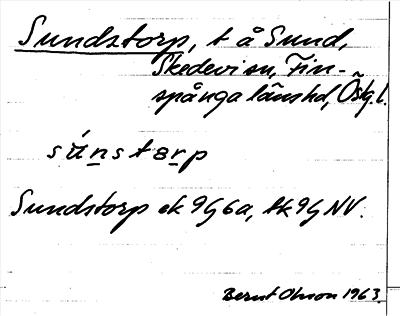 Sundstorp, t å Sund,
Skedevi sn, Fin-
spånga länshd, Östg.l.
súnstɔrp
Sundstorp ek 9G6a, tk 9G NV.
Bernt Olsson 1963